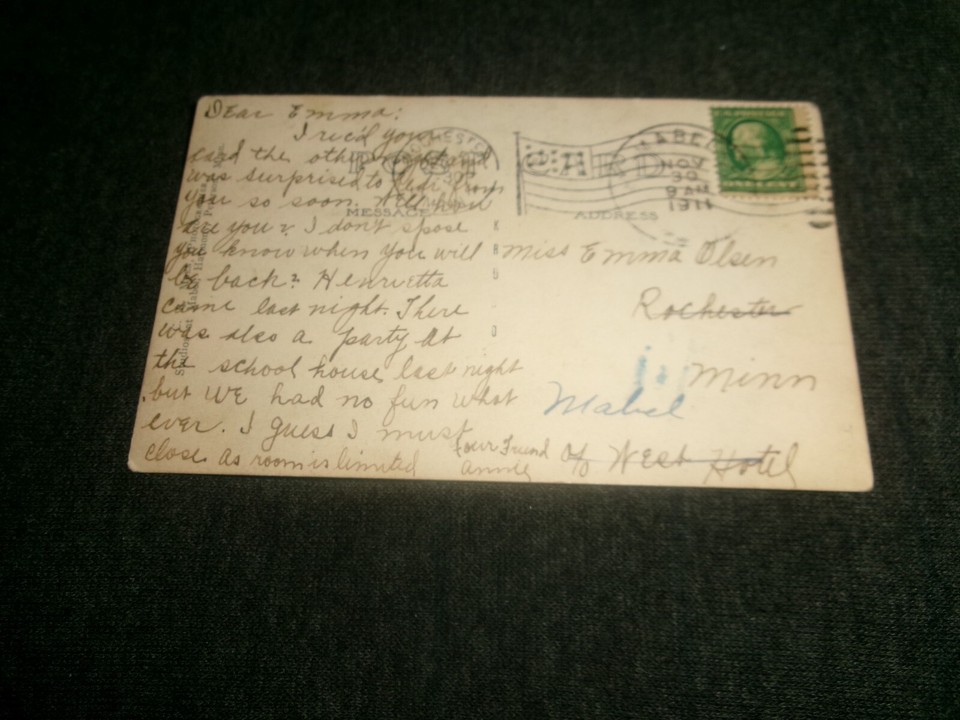 Dear Emma:
I rec'd your
card the other night and
was surprised to hear from
you so soon. Well how
are you? I don't spose
you know when you will
be back? Henrietta
came last night. There
was also a party at
the school house last night
but we had no fun what
ever. I guess I must
close as room is limited
Your Friend
Annie
POST CARD
MESSAGE
ADDRESS
NOV
30
9 AM
1911
Miss Emma Olsen
Rochester
Minn
Mabel
c/o West Hotel